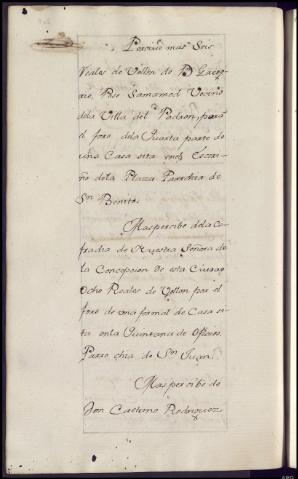 Percive mas Seis
Reales de Vellon de Dn Grego-
rio Ruiz Samamed Vecino
dela Villa del Padron, por
el foro dela Quarta parte de
una Casa sita en el
dela Plaza de
Sn Benito.
Mas percibe dela Co-
fradia de Nuestra Señora de
la Concepcion de esta Ciudad
Ocho Reales de Vellon por el
foro de una de Casa si-
ta en la Quintana de
Parro, chia de Sn Juan.
Mas percibe de
Don Caetano Rodriguez